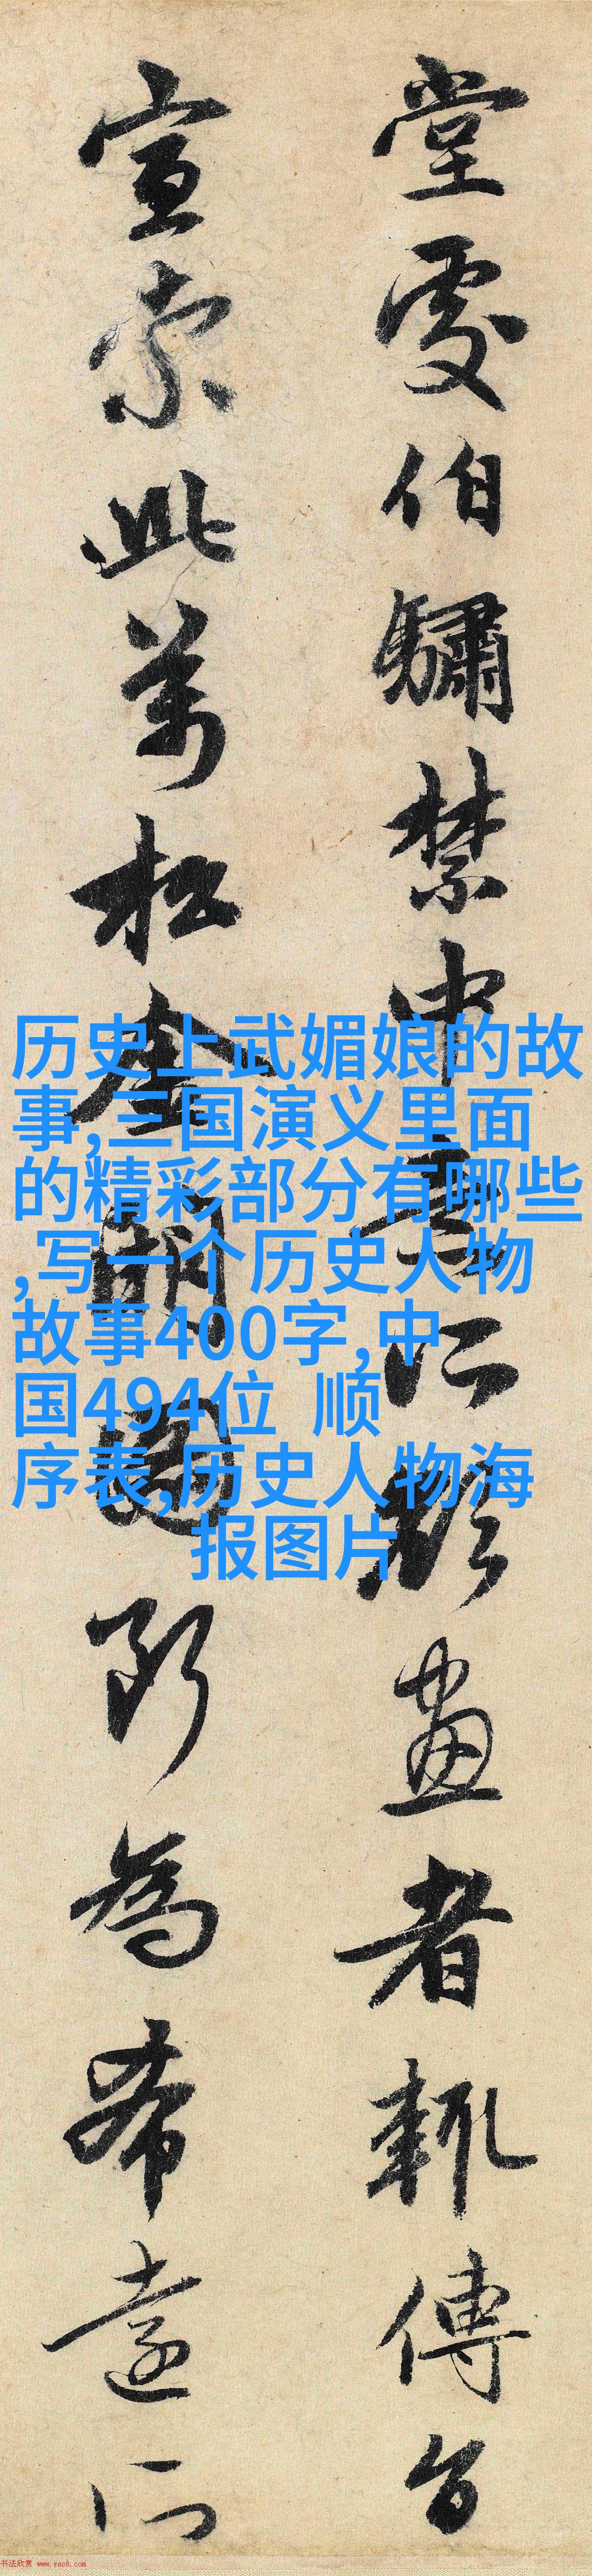 堂處伯驌禁中意所欲畫者輒傳旨
宣索此萬松金闕圖斷為希遠所
历史上武媚娘的故
事,三国演义里面
的精彩部分有哪些
,写一个历史人物
故事400字,中
国494位  顺
序表,历史人物海
报图片
书法欣赏 www.yac8.com